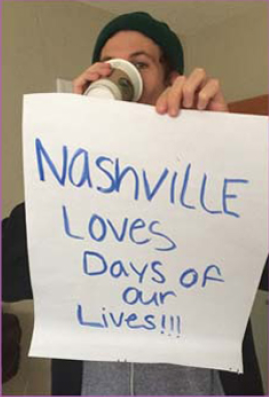 NASHVILLE
Loves
Days of
our
Lives!!!